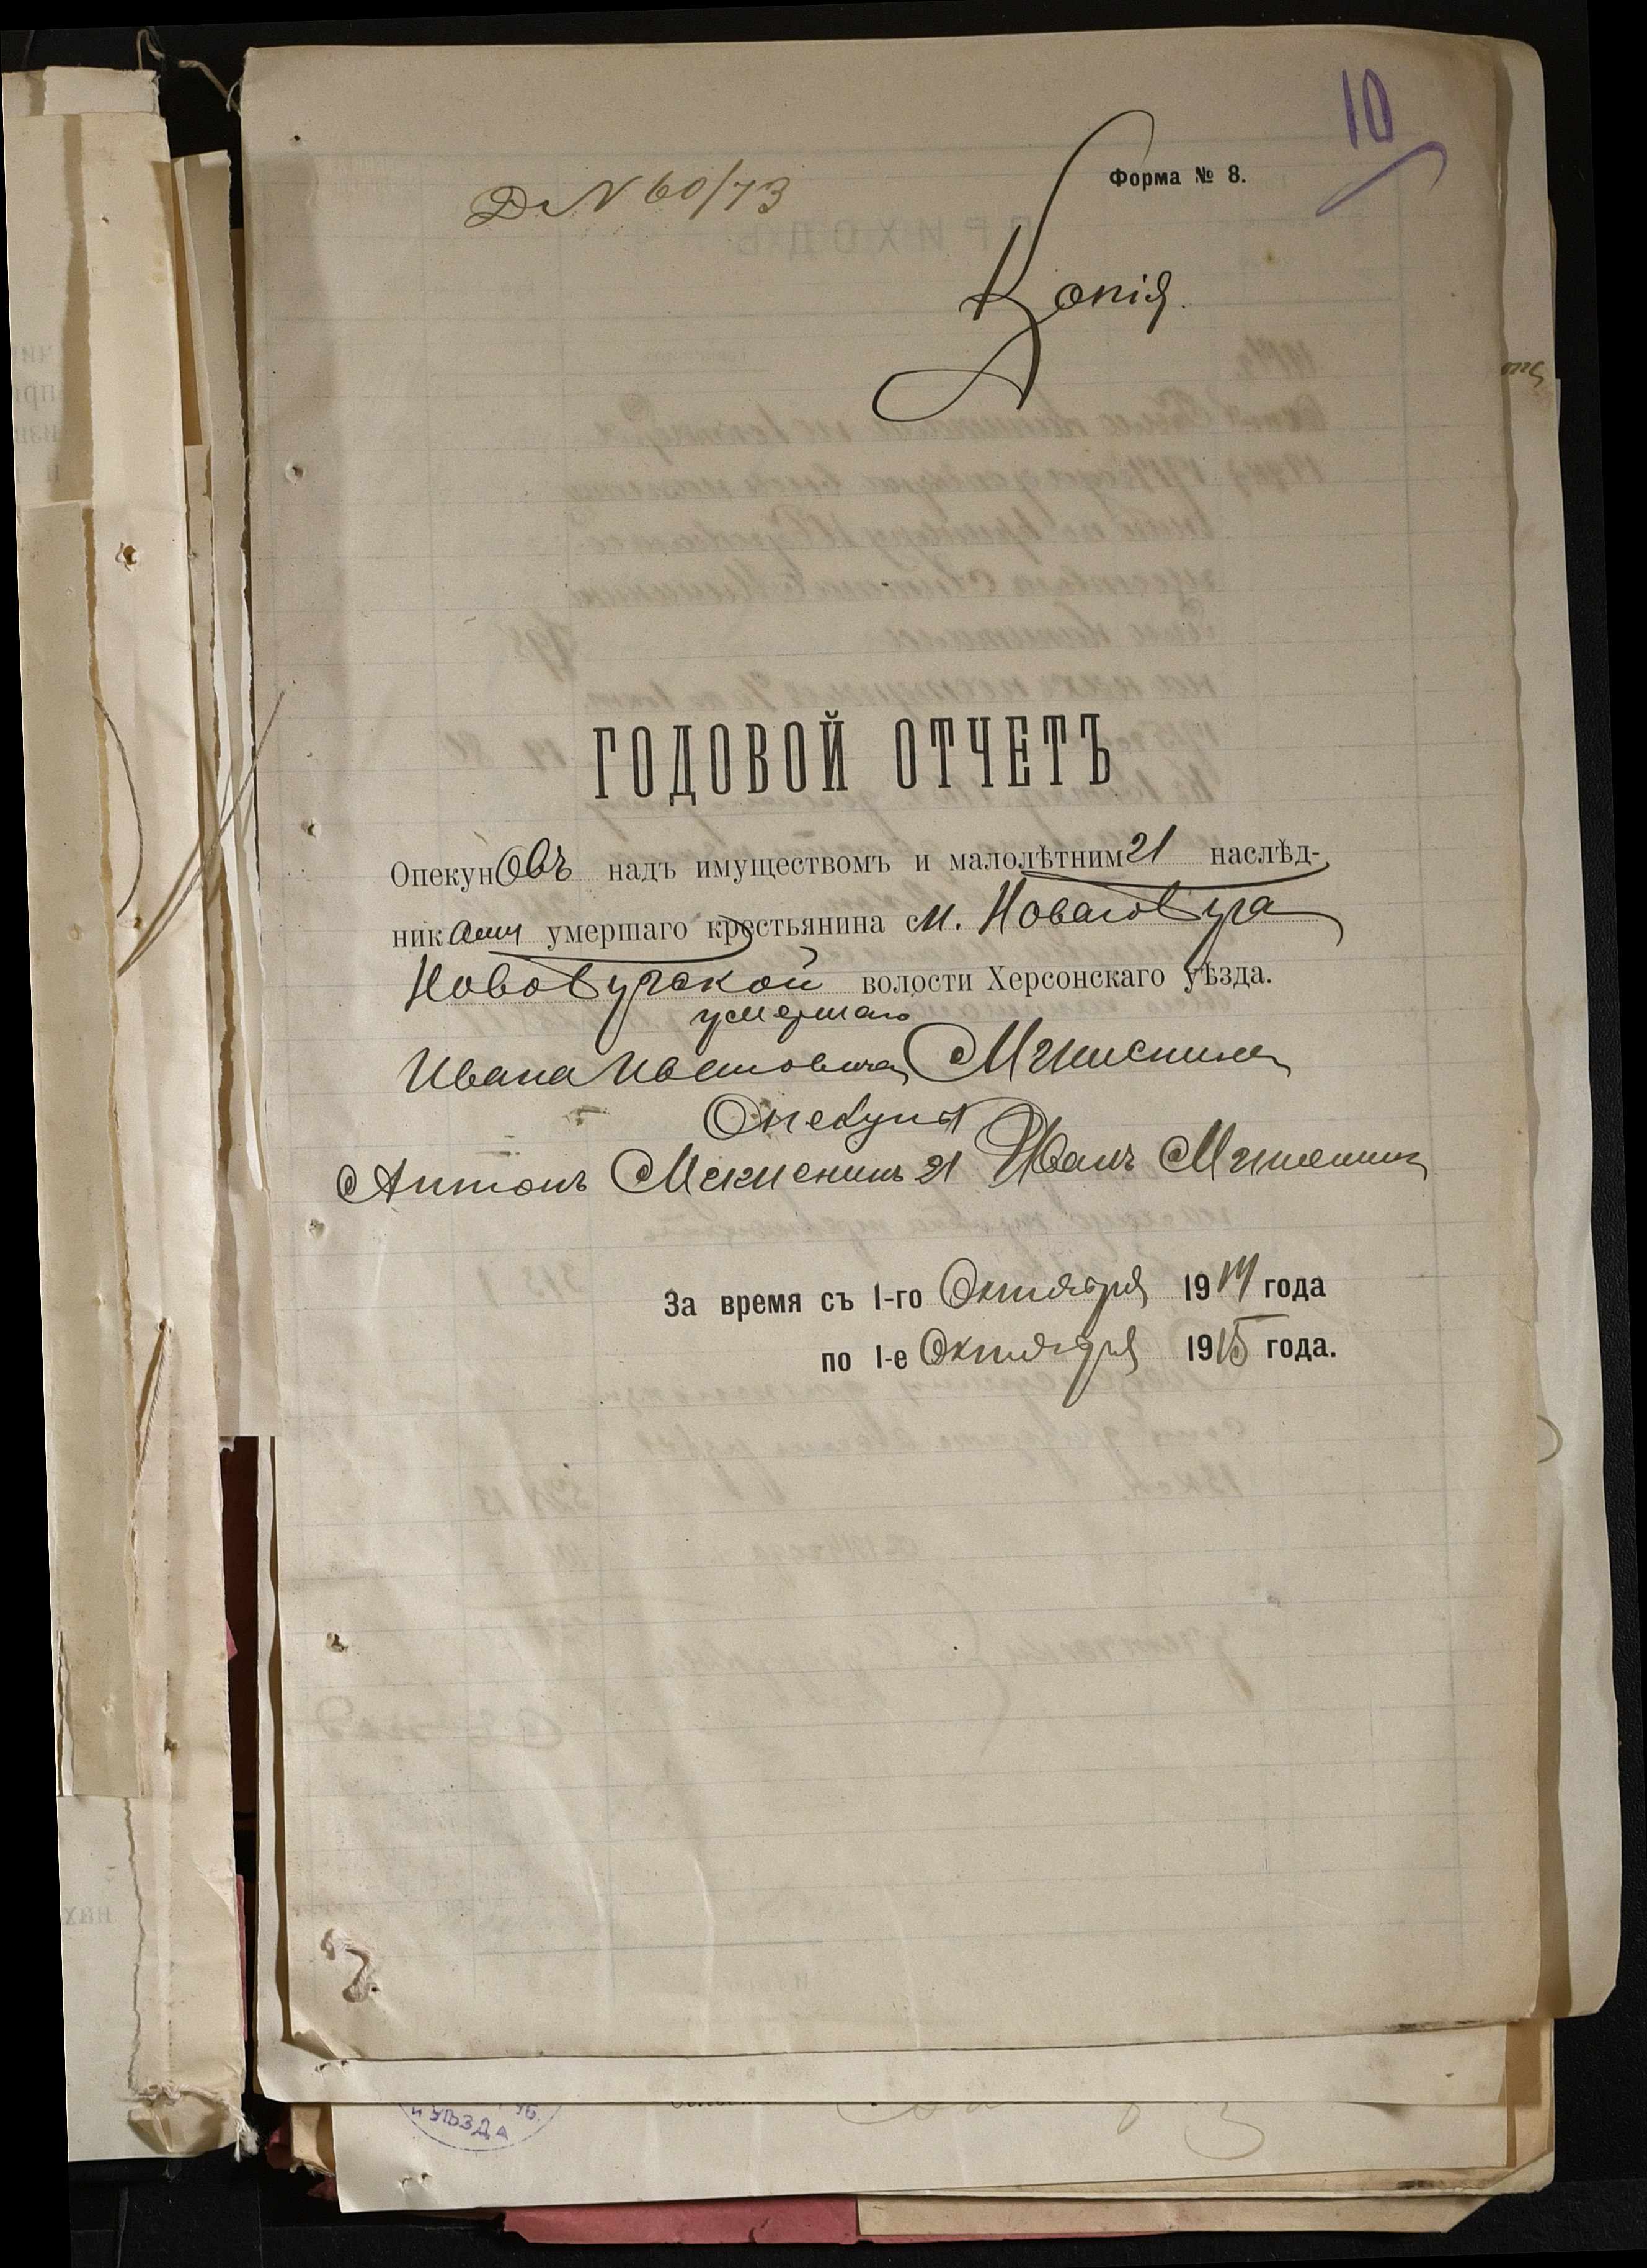 10
Д № 60/73
Форма № 8.
Копія.
ГОДОВОЙ ОТЧЕТЪ
Опекуновъ надъ имуществомъ и малолѣтними наслѣд-
никами умершаго крестьянина м. Новаго Буга
Новобугской волости Херсонскаго уѣзда.
умершаго
Ивана Ивановича
Опекуны
Антонъ и Иванъ
За время съ 1-го Октября 1914 года
по 1-е Октября 1915 года.
УѢЗДА